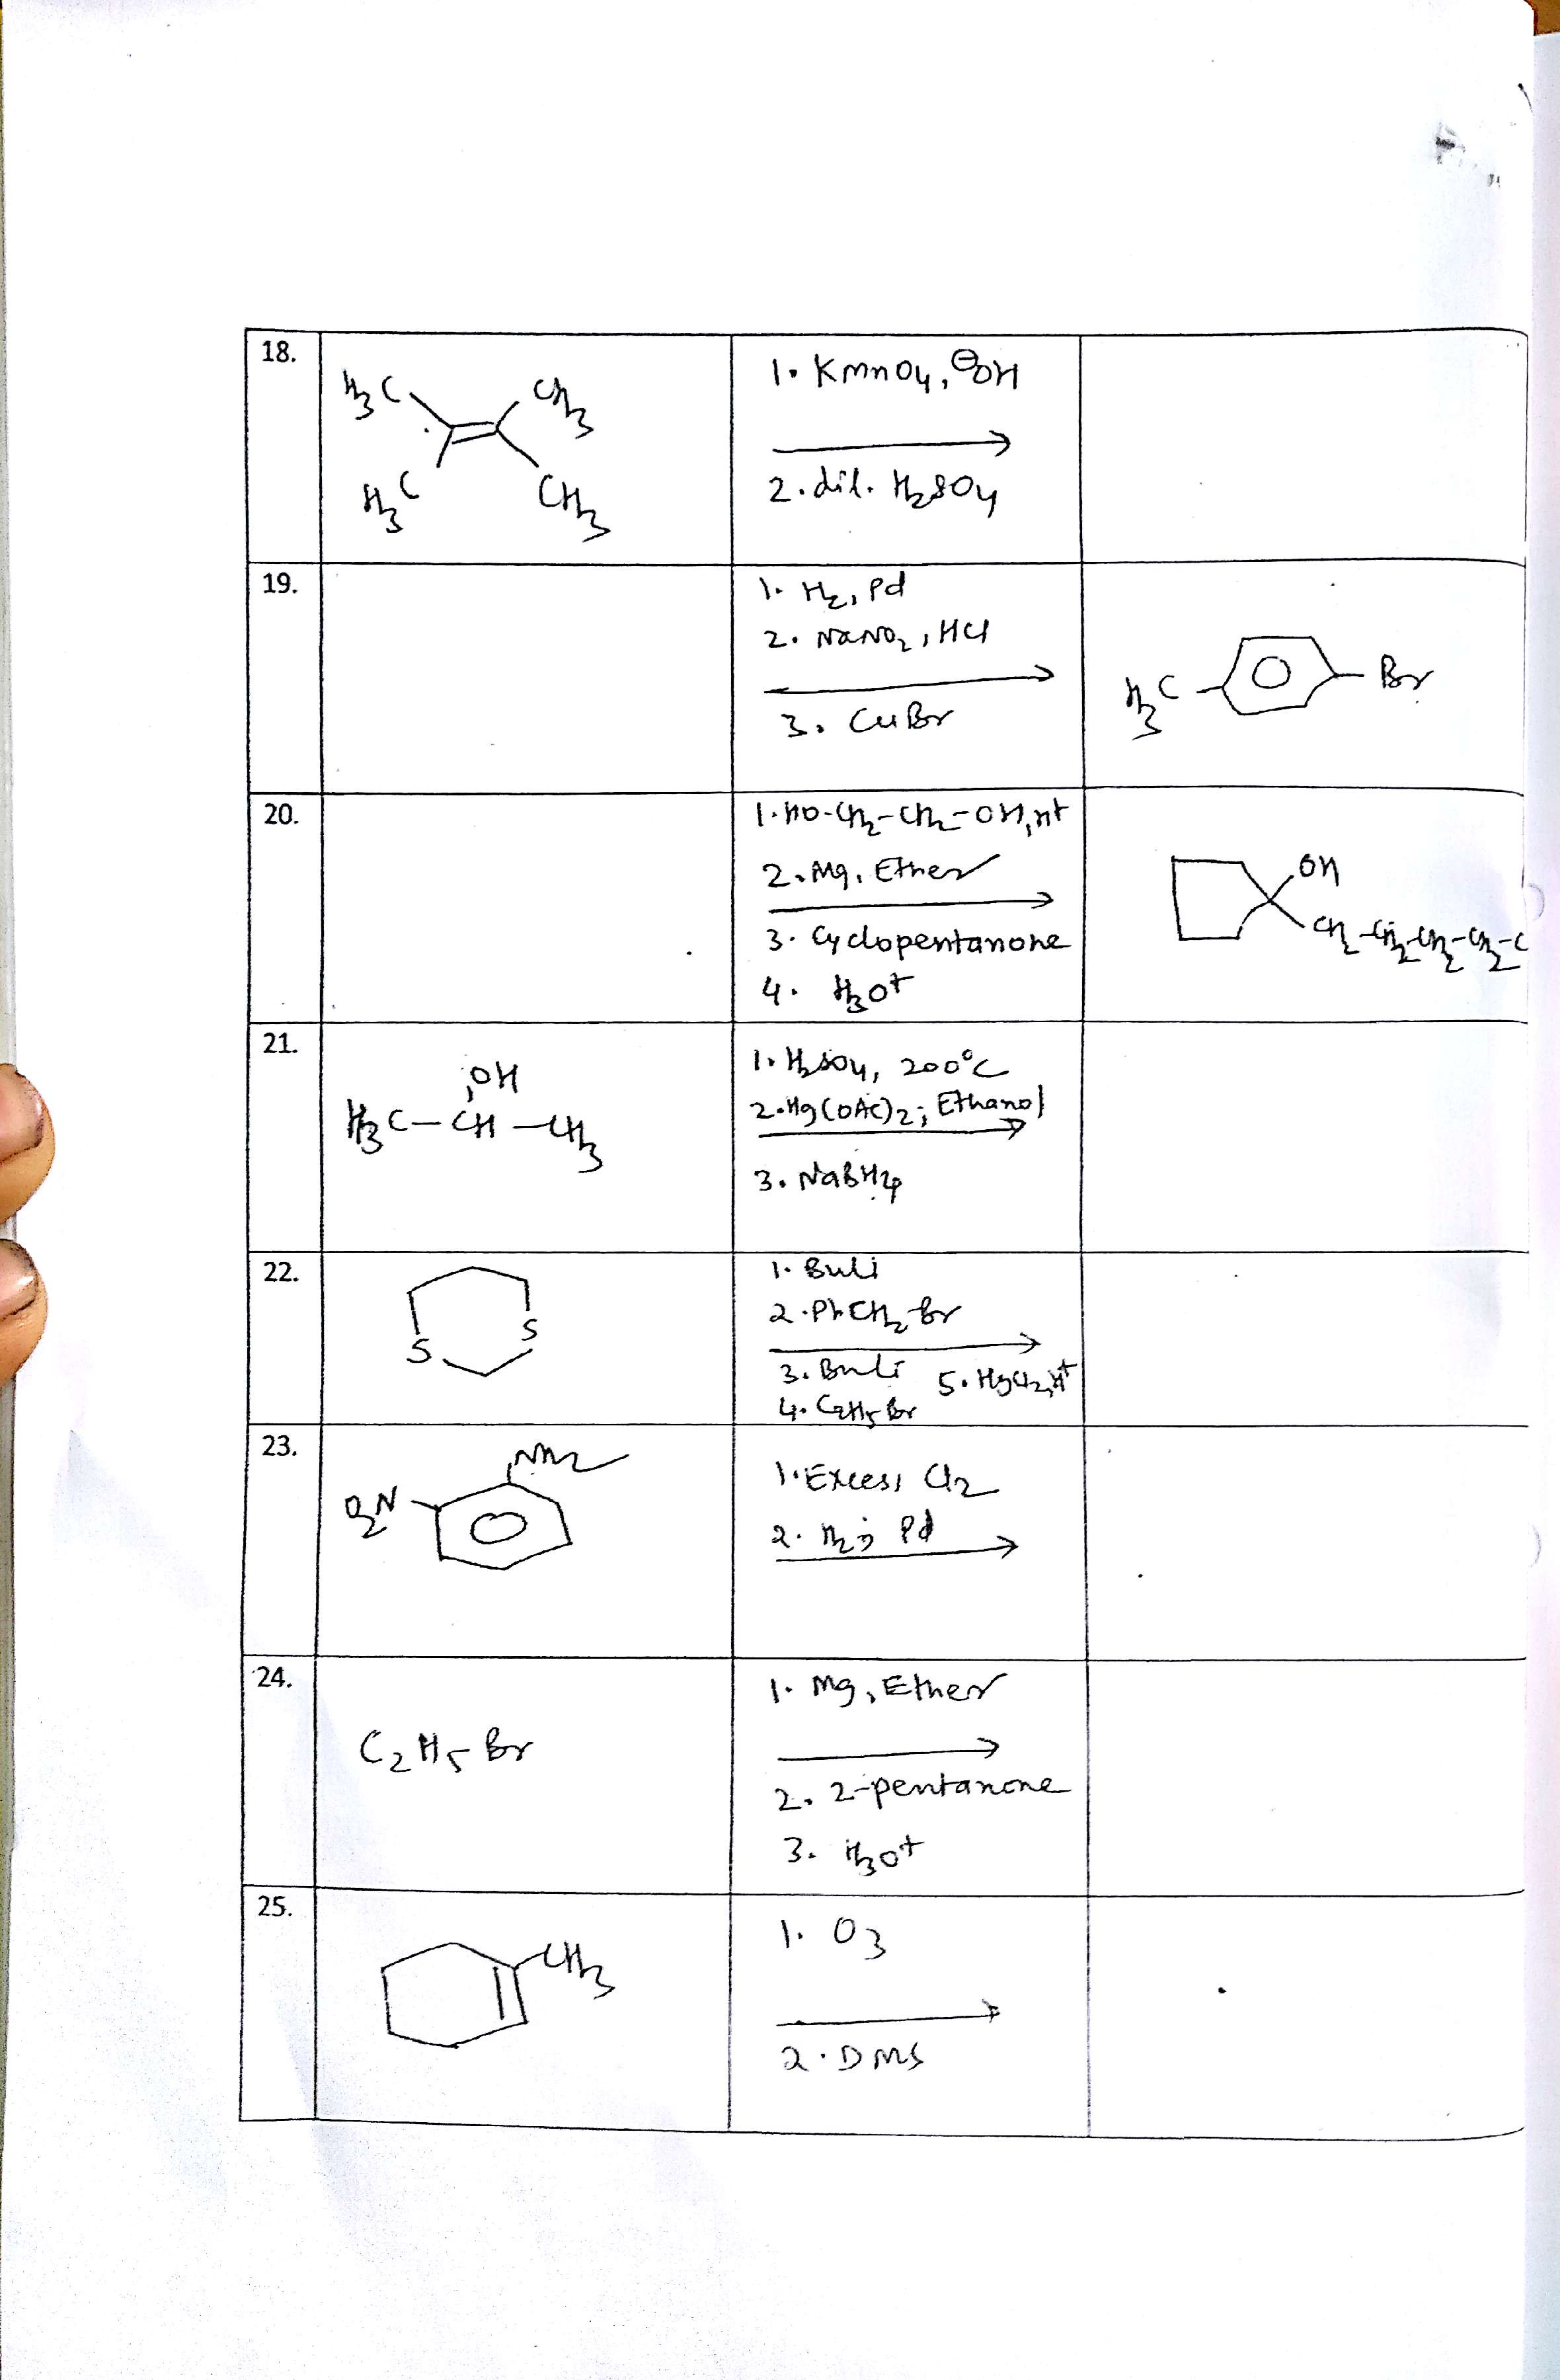 18.
H3C CH3
H3C CH3
1. KMnO4, ⊖OH
2. dil. H2SO4
19.
1. H2, Pd
2. NaNO2, HCl
3. CuBr
H3C Br
20.
1. HO-CH2-CH2-OH, H+
2. Mg, Ether
3. Cyclopentanone
4. H3O+
OH
CH2-CH2-CH2-CH2-C
21.
OH
H3C-CH-CH3
1. H2SO4, 200°C
2. Hg(OAc)2; Ethanol
3. NaBH4
22.
S
S
1. BuLi
2. PhCH2Br
3. BuLi 5. HgCl2, H+
4. C2H5Br
23.
NH2
O2N
1. Excess Cl2
2. H2; Pd
24.
C2H5Br
1. Mg, Ether
2. 2-pentanone
3. H3O+
25.
CH3
1. O3
2. DMS